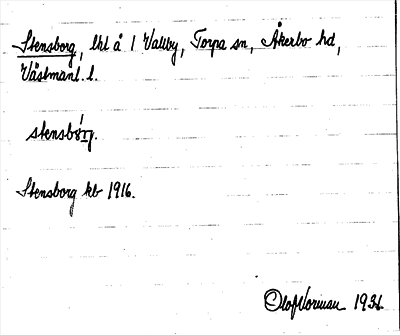 Stensborg, lht å 1 Vallby, Torpa sn, Åkerbo hd,
Västmanl. l.
stensbǒrj.
Stensborg kb 1916.
Olof Norman 1936